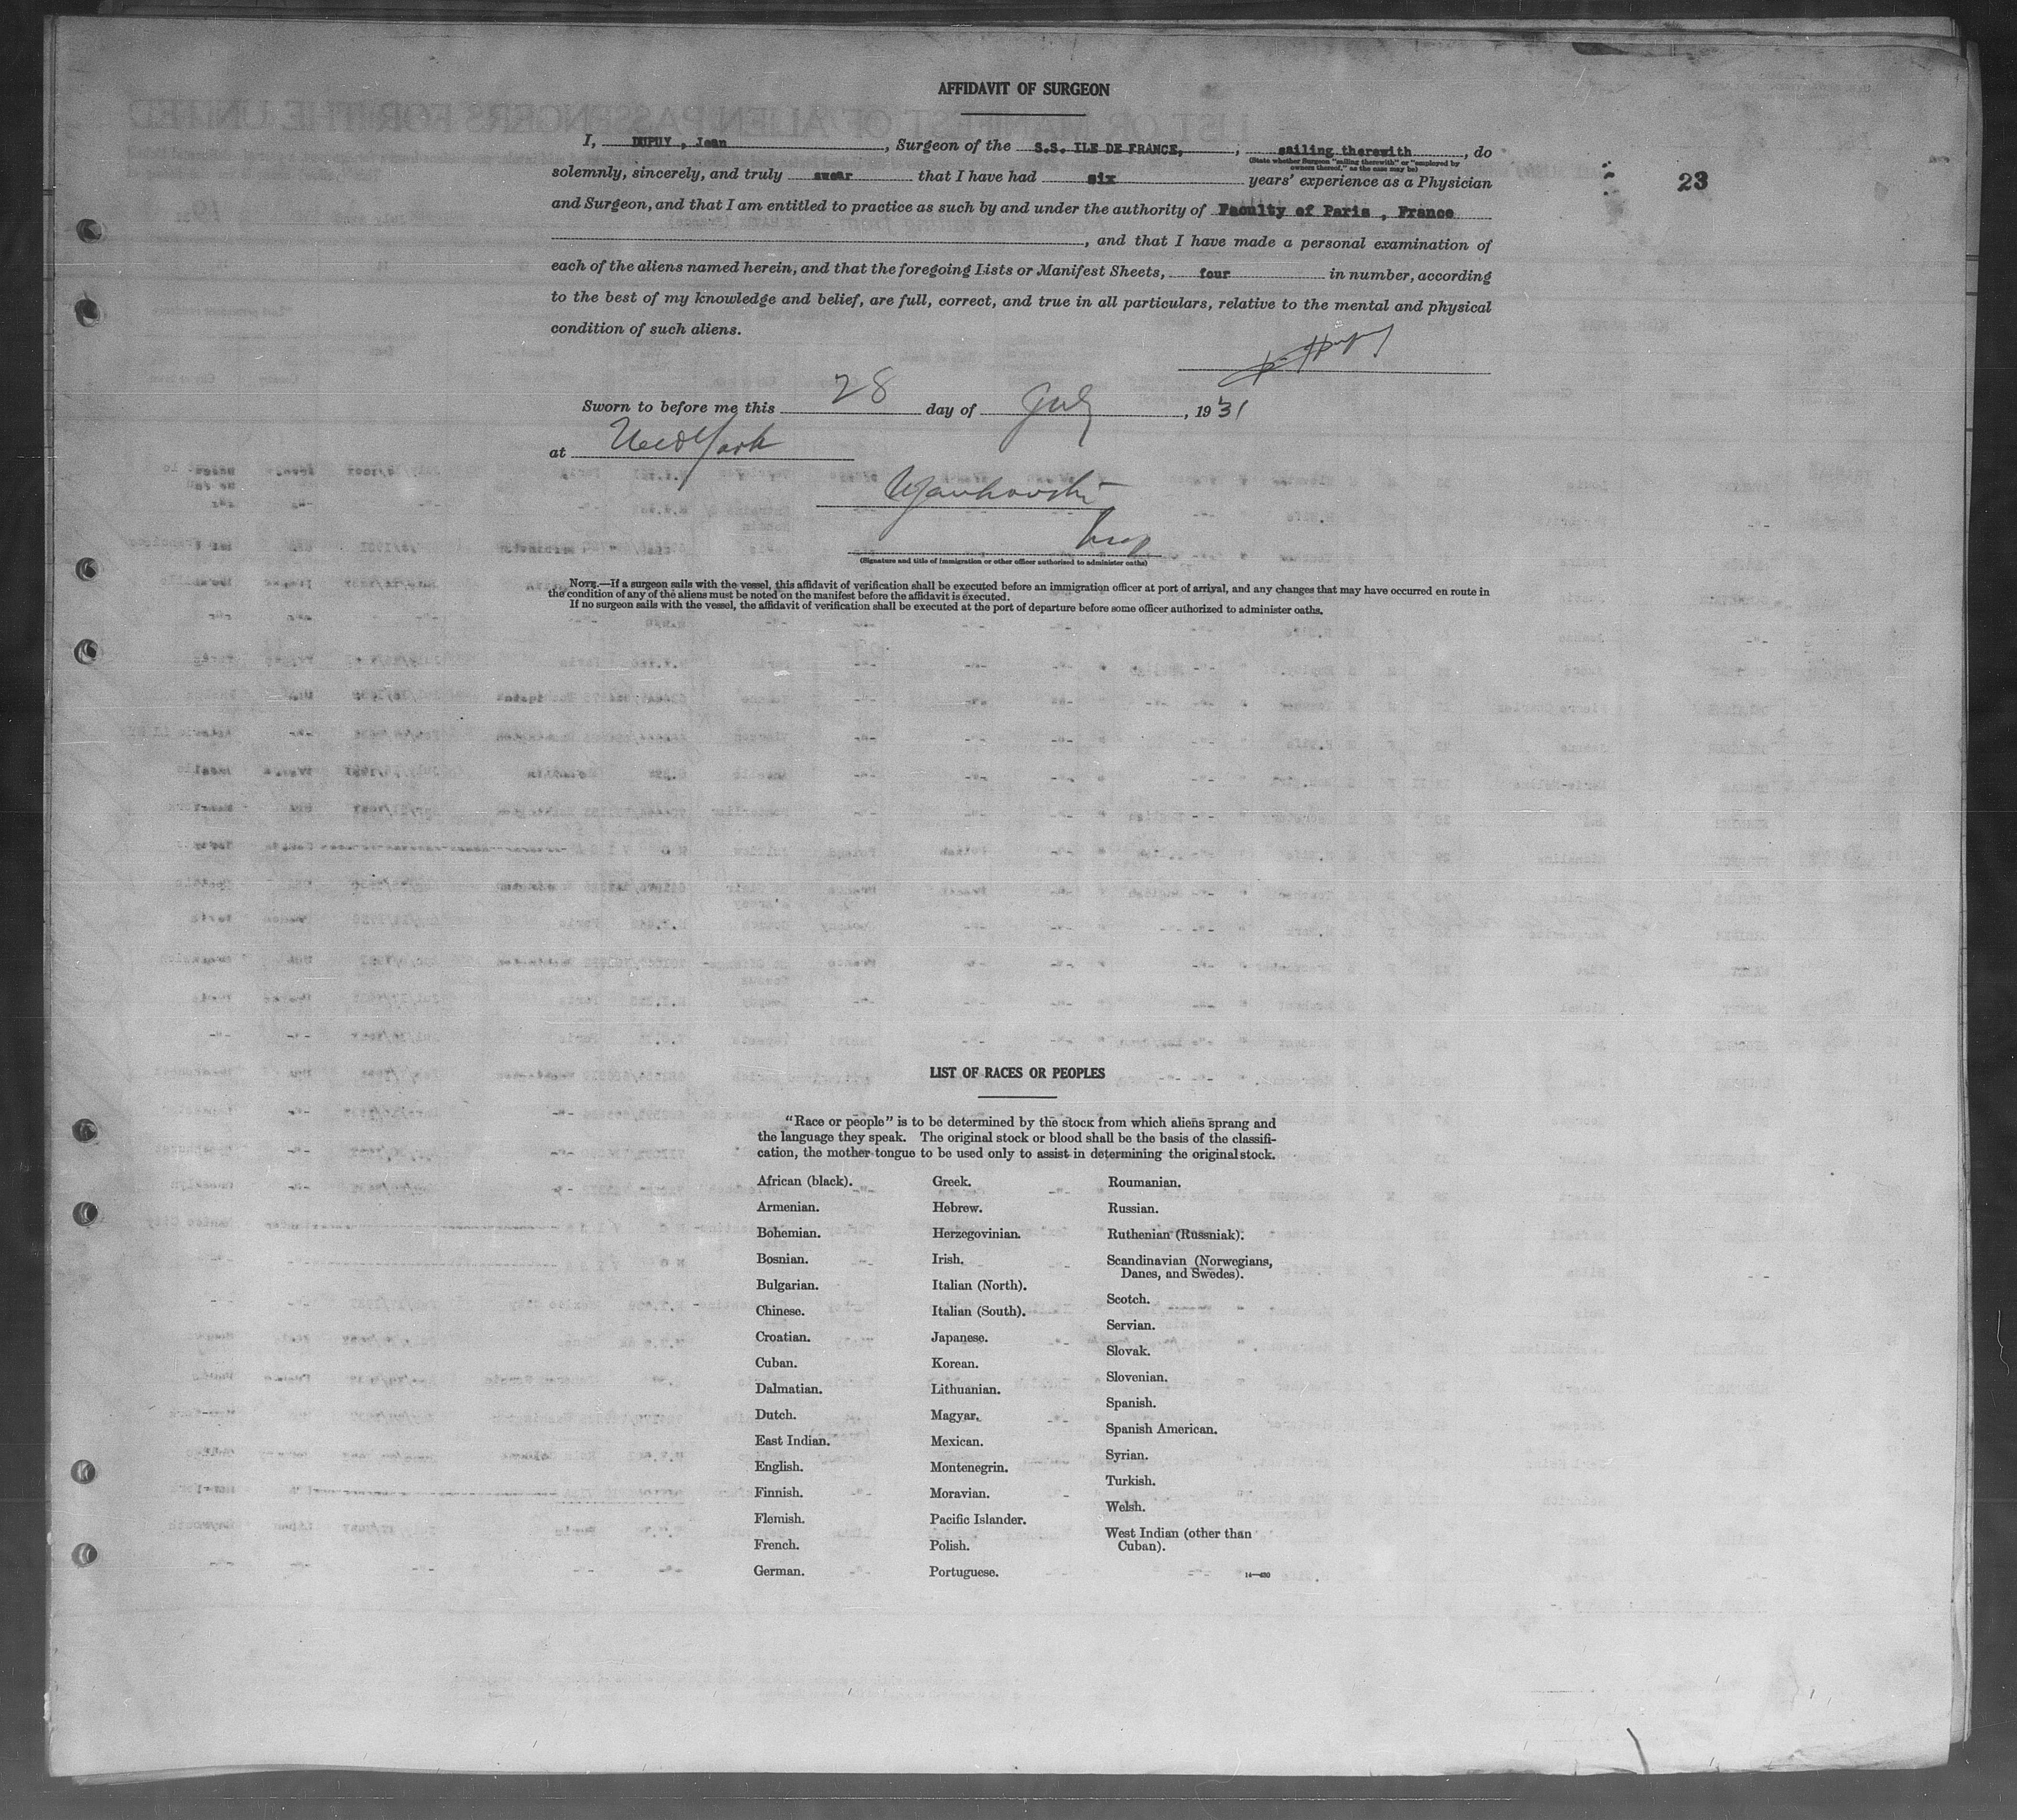 AFFIDAVIT OF SURGEON
I, DUPUY , Jean, Surgeon of the S.S. ILE DE FRANCE, , sailing therewith, do
(State whether Surgeon "sailing therewith" or "employed by
owners thereof," as the case may be)
23
solemnly, sincerely, and truly swear that I have had six years' experience as a Physician
and Surgeon, and that I am entitled to practice as such by and under the authority of Faculty of Paris , France
, and that I have made a personal examination of
each of the aliens named herein, and that the foregoing Lists or Manifest Sheets, four in number, according
to the best of my knowledge and belief, are full, correct, and true in all particulars, relative to the mental and physical
condition of such aliens.
Sworn to before me this 28 day of July, 1931
at New York
(Signature and title of immigration or other officer authorized to administer oaths)
NOTE.—If a surgeon sails with the vessel, this affidavit of verification shall be executed before an immigration officer at port of arrival, and any changes that may have occurred en route in
the condition of any of the aliens must be noted on the manifest before the affidavit is executed.
If no surgeon sails with the vessel, the affidavit of verification shall be executed at the port of departure before some officer authorized to administer oaths.
LIST OF RACES OR PEOPLES
"Race or people" is to be determined by the stock from which aliens sprang and
the language they speak. The original stock or blood shall be the basis of the classifi-
cation, the mother tongue to be used only to assist in determining the original stock.
African (black).
Armenian.
Bohemian.
Bosnian.
Bulgarian.
Chinese.
Croatian.
Cuban.
Dalmatian.
Dutch.
East Indian.
English.
Finnish.
Flemish.
French.
German.
Greek.
Hebrew.
Herzegovinian.
Irish.
Italian (North).
Italian (South).
Japanese.
Korean.
Lithuanian.
Magyar.
Mexican.
Montenegrin.
Moravian.
Pacific Islander.
Polish.
Portuguese.
Roumanian.
Russian.
Ruthenian (Russniak).
Scandinavian (Norwegians,
Danes, and Swedes).
Scotch.
Servian.
Slovak.
Slovenian.
Spanish.
Spanish American.
Syrian.
Turkish.
Welsh.
West Indian (other than
Cuban).